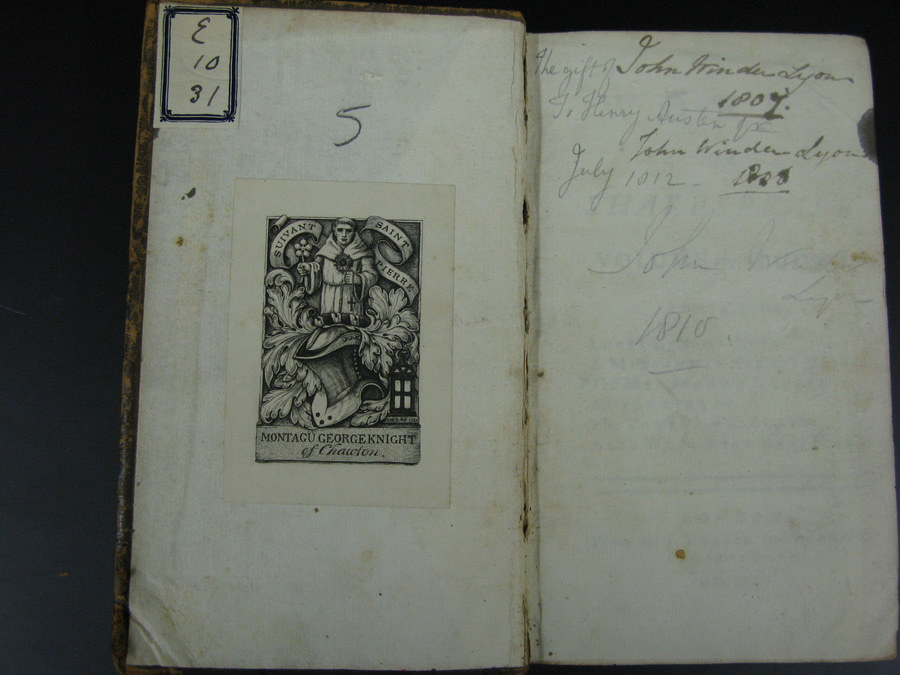 E
10
31
5
SUIVANT SAINT PIERRE
MONTAGU GEORGE KNIGHT
of Chawton.
The gift of John Winder Lyon
1807.
To Henry Austen
John Winder Lyon
July 1812 - 1808
John Winder
Lyon
1810